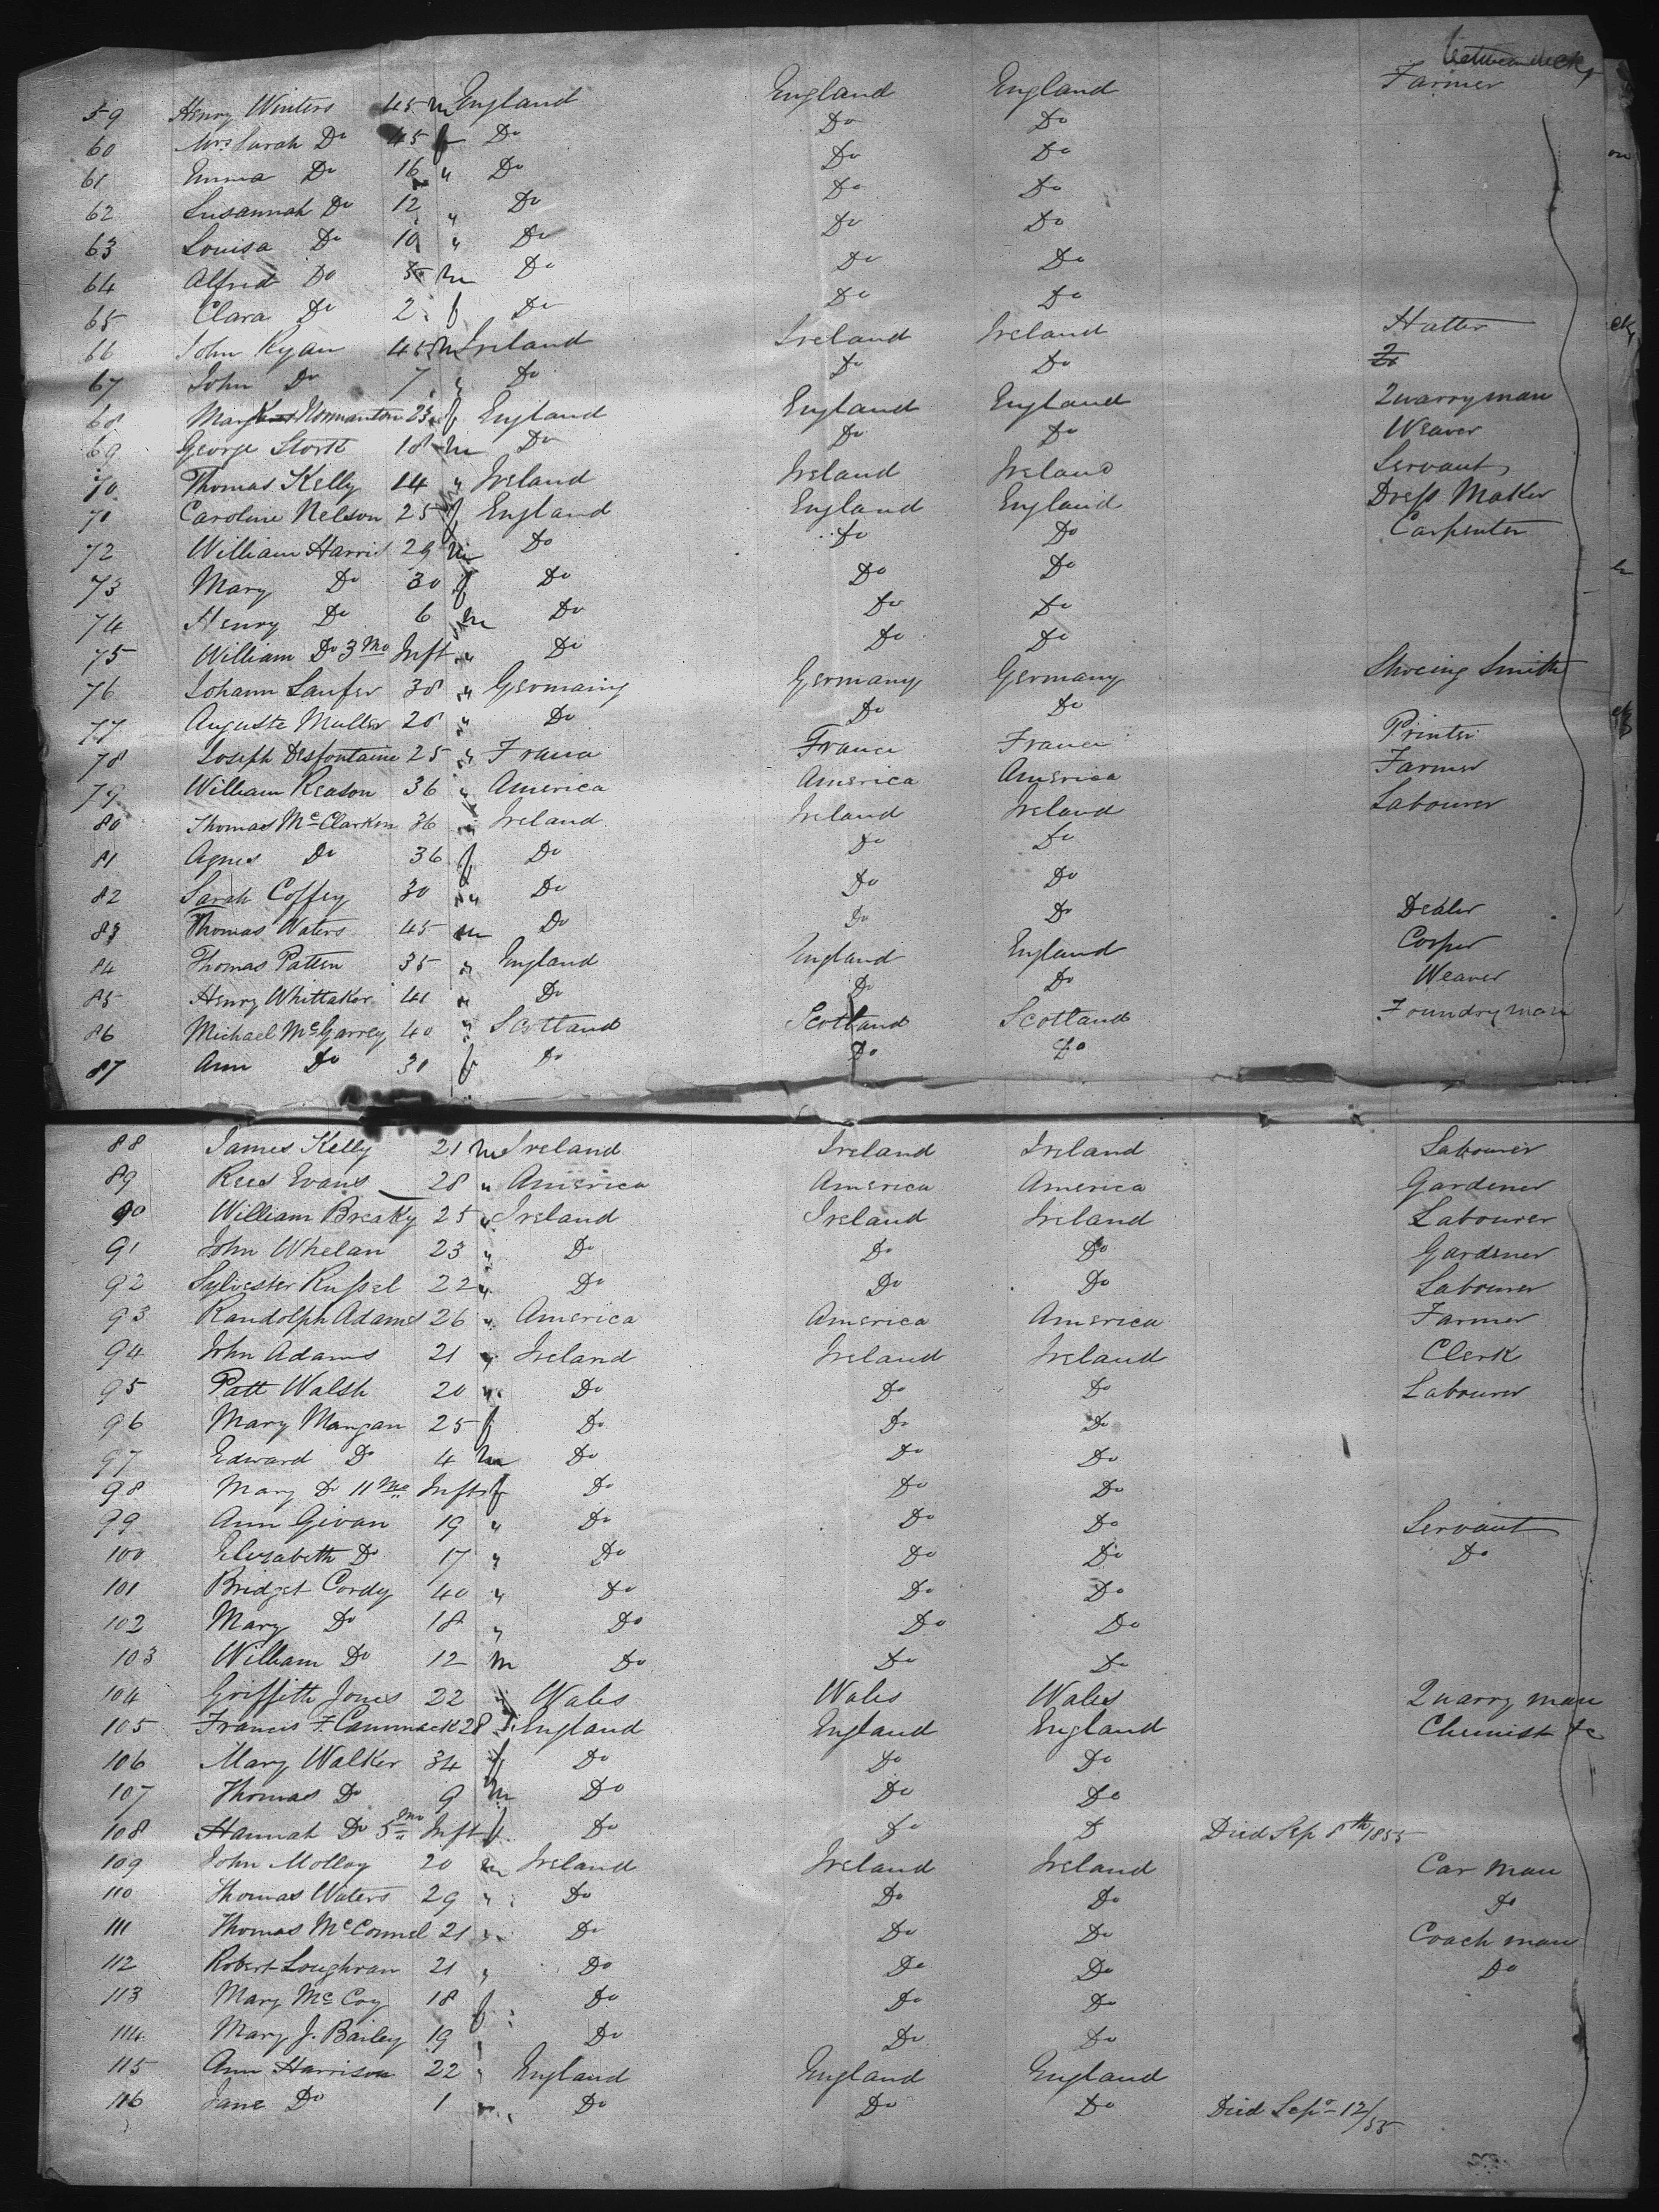 between decks
59 Henry Winters 45 m England England England Farmer
60 Mrs Sarah Do 45 f Do Do Do
61 Emma Do 16 " Do Do Do
62 Susannah Do 12 " Do Do Do
63 Louisa Do 10 " Do Do Do
64 Alfred Do 5 m Do Do Do
65 Clara Do 2 f Do Do Do
66 John Ryan 45 m Ireland Ireland Ireland Hatter
67 John Do 7 " Do Do Do
68 Mary Normanton 23 f England England England Quarryman
69 George Stort 18 m Do Do Do Weaver
70 Thomas Kelly 14 " Ireland Ireland Ireland Servant
71 Caroline Nelson 25 f England England England Dress Maker
72 William Harris 29 m Do Do Do Carpenter
73 Mary Do 30 f Do Do Do
74 Henry Do 6 m Do Do Do
75 William Do 3 Mo Inft " Do Do Do
76 Johann Laufer 38 " Germany Germany Germany Shoeing Smith
77 Auguste Muller 28 " Do Do Do
78 Joseph Desfontaine 25 " France France France Printer
79 William Reason 36 " America America America Farmer
80 Thomas McClarkin 36 " Ireland Ireland Ireland Labourer
81 Agnes Do 36 f Do Do Do
82 Sarah Coffey 30 " Do Do Do
83 Thomas Waters 45 m Do Do Do Dealer
84 Thomas Patten 35 " England England England Cooper
85 Henry Whittaker 41 " Do Do Do Weaver
86 Michael McGarrey 40 " Scotland Scotland Scotland Foundryman
87 Ann Do 30 f Do Do Do
88 James Kelly 21 m Ireland Ireland Ireland Labourer
89 Rees Evans 28 " America America America Gardener
90 William Breaky 25 " Ireland Ireland Ireland Labourer
91 John Whelan 23 " Do Do Do Gardener
92 Sylvester Russel 22 " Do Do Do Labourer
93 Randolph Adams 26 " America America America Farmer
94 John Adams 21 " Ireland Ireland Ireland Clerk
95 Patt Walsh 20 " Do Do Do Labourer
96 Mary Mangan 25 f Do Do Do
97 Edward Do 4 m Do Do Do
98 Mary Do 11 Mo Inft f Do Do Do
99 Ann Givan 19 " Do Do Do Servant
100 Elizabeth Do 17 " Do Do Do Do
101 Bridget Cordy 40 " Do Do Do
102 Mary Do 18 " Do Do Do
103 William Do 12 m Do Do Do
104 Griffith Jones 22 " Wales Wales Wales Quarry man
105 Francis F. Cammack 28 " England England England Chemist &c
106 Mary Walker 34 f Do Do Do
107 Thomas Do 9 m Do Do Do
108 Hannah Do 5 Mo Inft f Do Do D Died Sep 8th 1855
109 John Molloy 20 m Ireland Ireland Ireland Car man
110 Thomas Waters 29 " Do Do Do Do
111 Thomas McConnel 21 " Do Do Do Coach man
112 Robert Loughran 21 " Do Do Do Do
113 Mary McCoy 18 f Do Do Do
114 Mary J. Bailey 19 " Do Do Do
115 Ann Harrison 22 " England England England
116 Jane Do 1 " Do Do Do Died Sepr 12/55